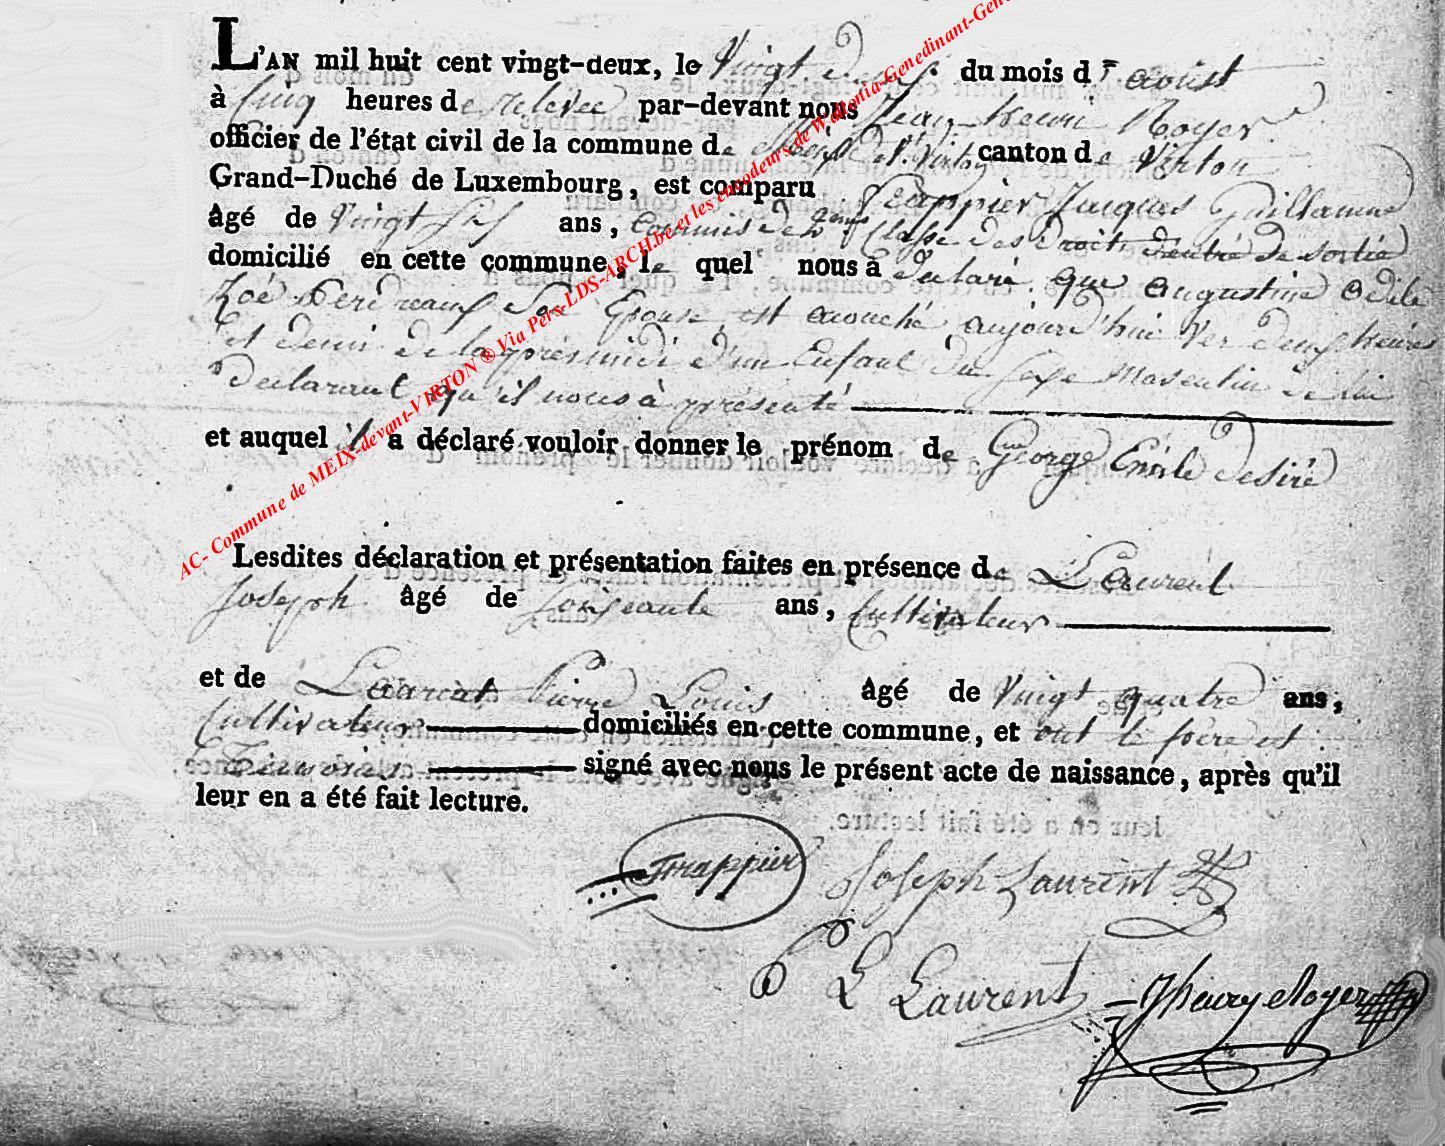 L'AN mil huit cent vingt-deux, le Vingt deux du mois d'aoüst
à Cinq heures de relevée par-devant nous Jean henri Noyer
officier de l'état civil de la commune de Meix dt. Virton canton de Virton
Grand-Duché de Luxembourg, est comparu Frappier Jacques Guillaume
âgé de Vingt six ans, Commis de 2eme Classe des droits d'entré de sortie
domicilié en cette commune, le quel nous à declaré que augustine odile
Zoé son Epouse est acouché aujourd'hui Ver deux heures
Et demi de la présmidi d'un Enfant du sexe Masculin de lui
declarant qu'il nous à présenté
et auquel il a déclaré vouloir donner le prénom de George Emile desiré
Lesdites déclaration et présentation faites en présence de Laurent
Joseph âgé de soixeante ans, Cultivateur
et de Laurent Pierre Louis âgé de Vingt quatre ans,
Cultivateur domiciliés en cette commune, et ont le père et
Temoins signé avec nous le présent acte de naissance, après qu'il
leur en a été fait lecture.
Frappier Joseph Laurent
P L Laurent Jhenry Noyer
AC- Commune de MEIX-devant-VIRTON ® Via Pers-LDS-ARCH.be et les encodeurs de Wallonia-Genedinant-Gen